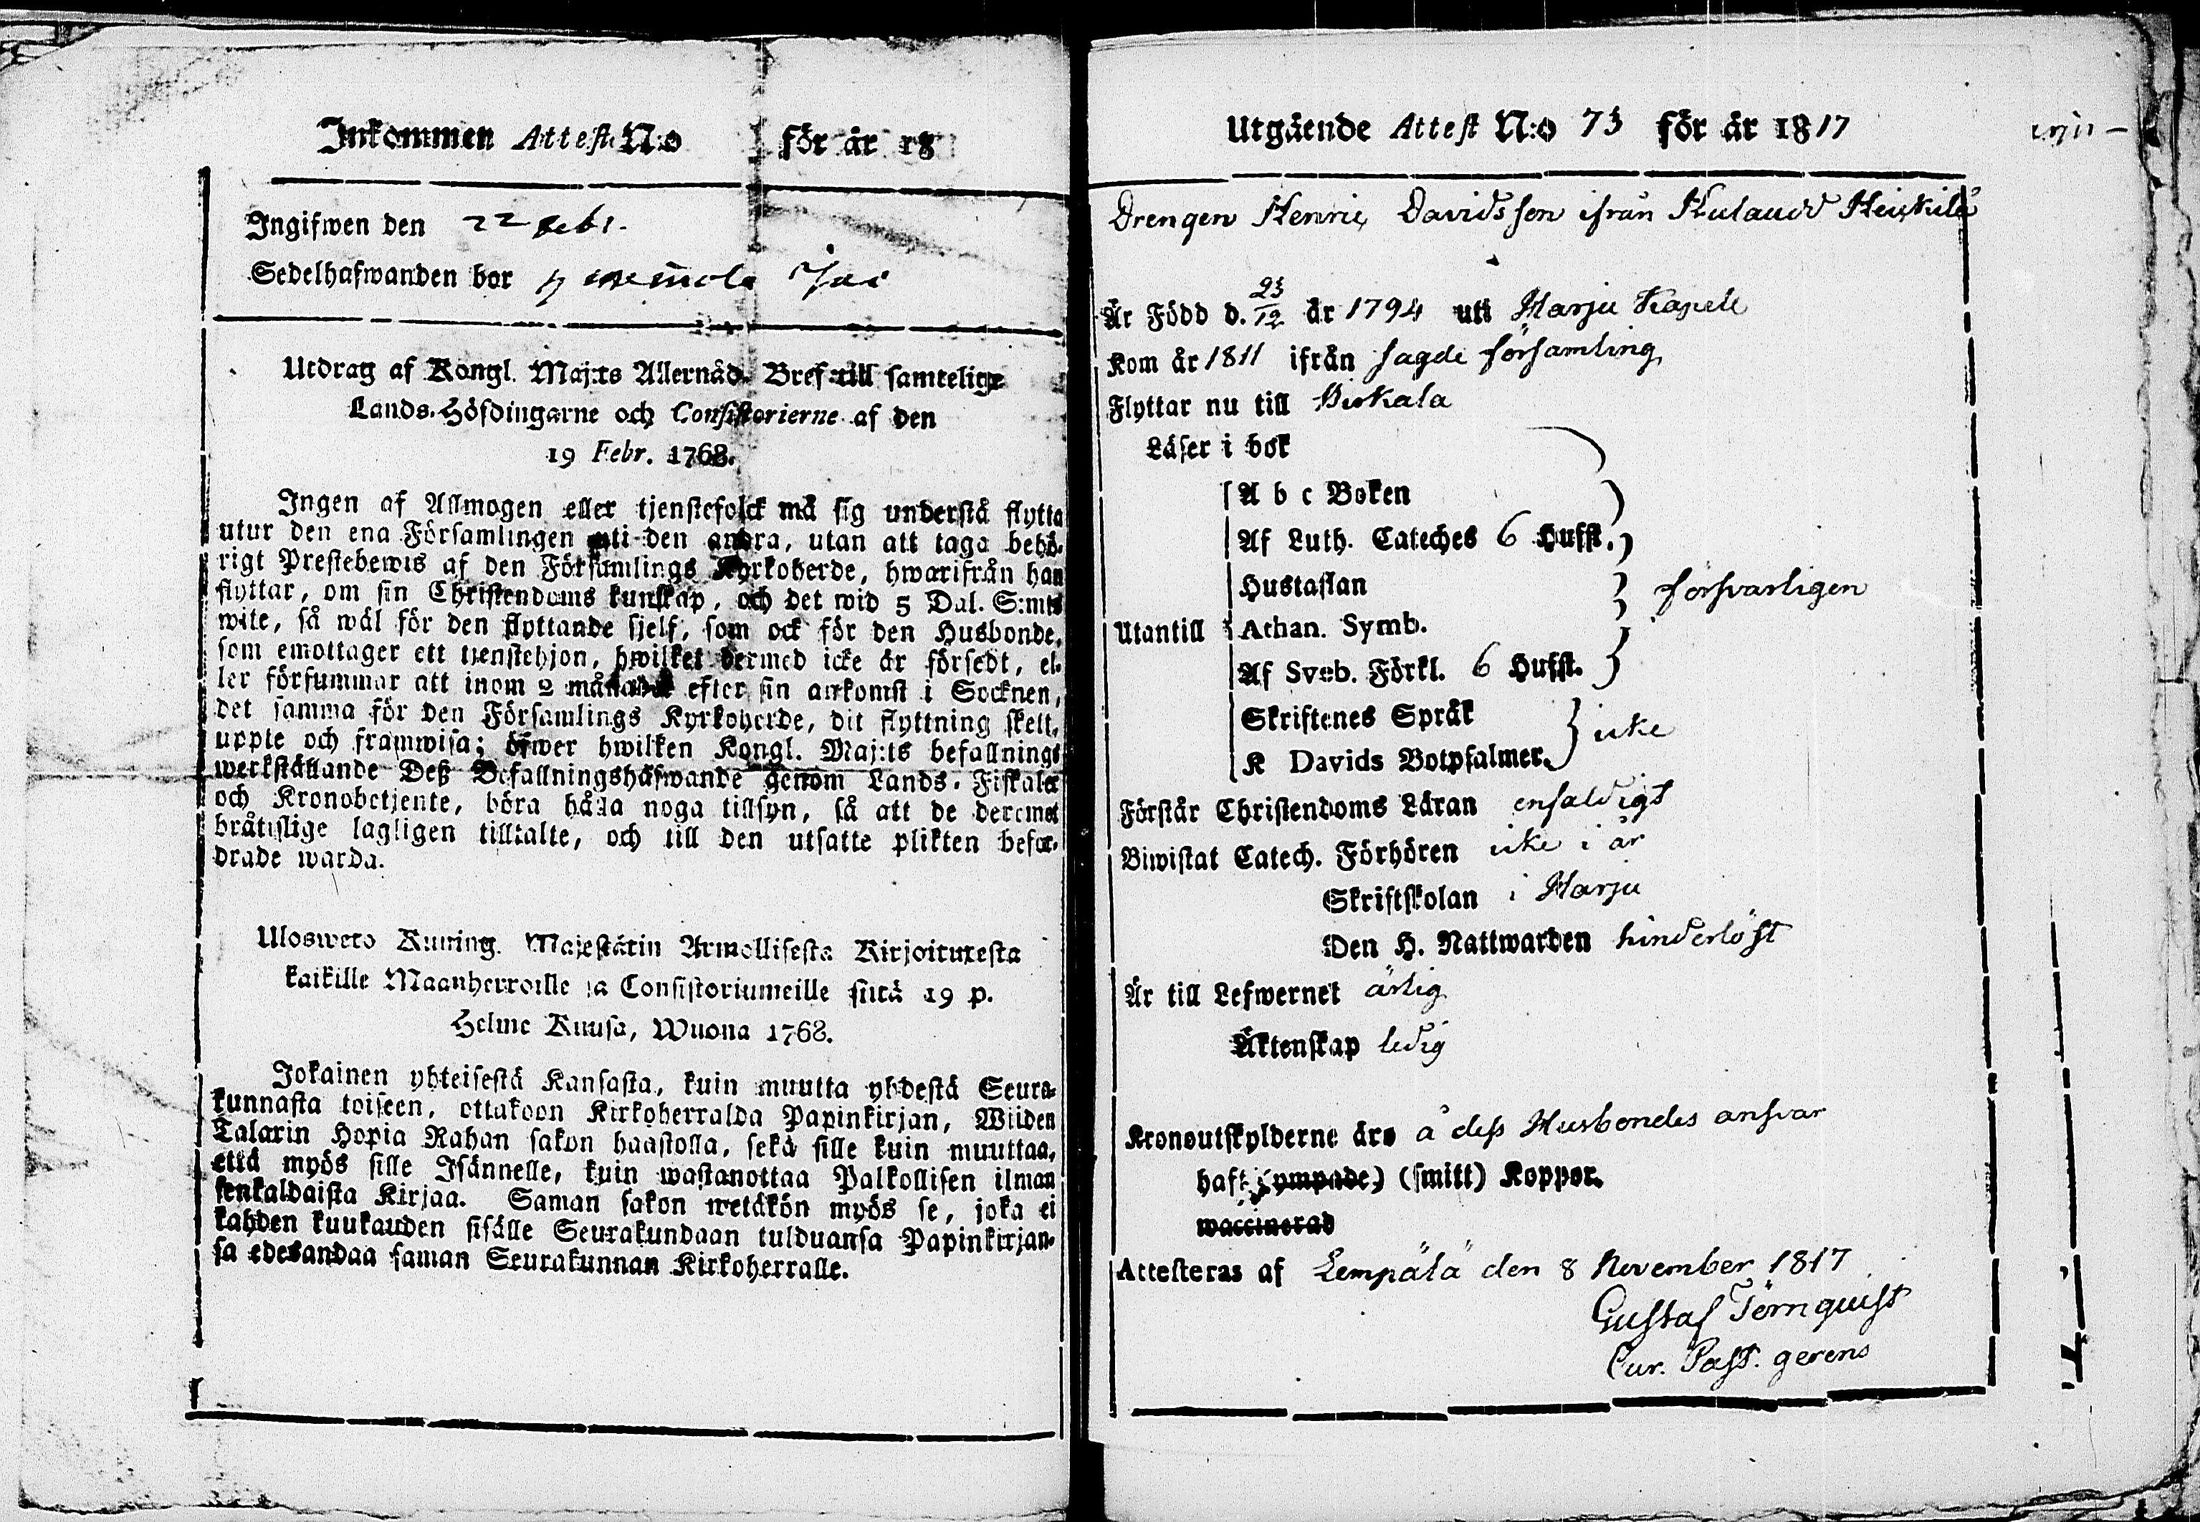 Inkommen Attest N:o för år 18
Ingifwen den 22 Febr.
Sedelhafwanden bor
Utdrag af Kongl. Maj:ts Allernåd. Bref till samtelige
Lands-Höfdingarne och Consistorierne af den
19 Febr. 1768.
Ingen af Allmogen eller tjenstefolck må sig understå flytta
utur den ena Församlingen uti den andra, utan att taga behö-
rigt Prestebewis af den Församlings Kyrkoherde, hwarifrån han
flyttar, om sin Christendoms kunskap, och det wid 5 Dal. S:mts
wite, så wäl för den flyttande sjelf, som ock för den Husbonde,
som emottager ett tjenstehjon, hwilket dermed icke är försedt, el-
ler försummar att inom 2 månader efter sin ankomst i Socknen,
det samma för den Församlings Kyrkoherde, dit flyttning skett,
uppte och framwisa; öfwer hwilken Kongl. Maj:ts befallnings
werkställande Deß Befallningshafwande genom Lands-Fiskaler
och Kronobetjente, böra hålla noga tillsyn, så att de deremot
bråtislige lagligen tilltalte, och till den utsatte plikten befor-
drade warda.
Ulosweto Kuning. Majestätin Armollisesta Kirjoituxesta
kaikille Maanherroille ja Consistoriumeille siitä 19 p.
Helme Kuusa, Wuona 1768.
Jokainen yhteisestä Kansasta, kuin muutta yhdestä Seura-
kunnasta toiseen, ottakoon Kirkoherralda Papinkirjan, Wiiden
Talarin Hopia Rahan sakon haastolla, sekä sille kuin muuttaa,
että myös sille Isännelle, kuin wastanottaa Palkollisen ilman
senkaldaista Kirjaa. Saman sakon wetäkön myös se, joka ei
kahden kuukauden sisälle Seurakundaan tulduansa Papinkirjan-
sa edesandaa saman Seurakunnan Kirkoherralle.
Utgående Attest N:o 73 för år 1817
Drengen Henric Davidsson ifrån Kulaudd Heickilä
Är Född d. 23/12 år 1794 uti Harju Kapell
Kom år 1811 ifrån sagde församling
Flyttar nu till Birkala
Läser i bok
A b c Boken
Af Luth. Cateches 6 Hufst.
Hustaflan
försvarligen
Utantill Athan. Symb.
Af Sveb. Förkl. 6 Hufst.
Skriftenes Språk
icke
K Davids Botpsalmer.
Förstår Christendoms Läran enfaldigt
Biwistat Catech. Förhören icke i år
Skriftskolan i Harju
Den H. Nattwarden hinderlöst
Är till Lefwernet ärlig
Äktenskap ledig
Kronoutskylderne äro å dess Husbondes ansvar
haft (ympade) (smitt) Koppor.
waccinerad
Attesteras af Lempälä den 8 November 1817
Gustaf Törnquist
Cur. Past. gerens